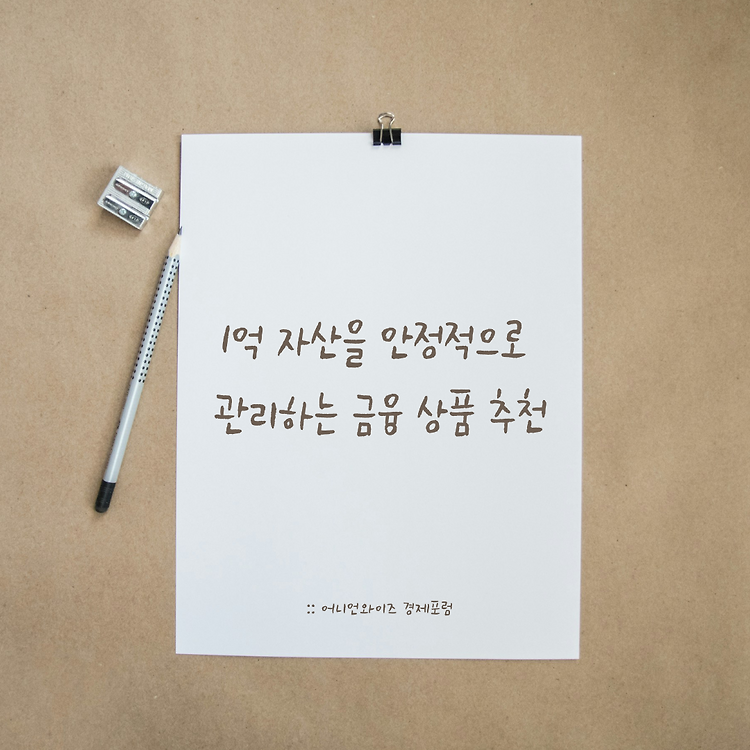 1억 자산을 안정적으로
관리하는 금융 상품 추천
:: 어니언와이즈 경제포럼